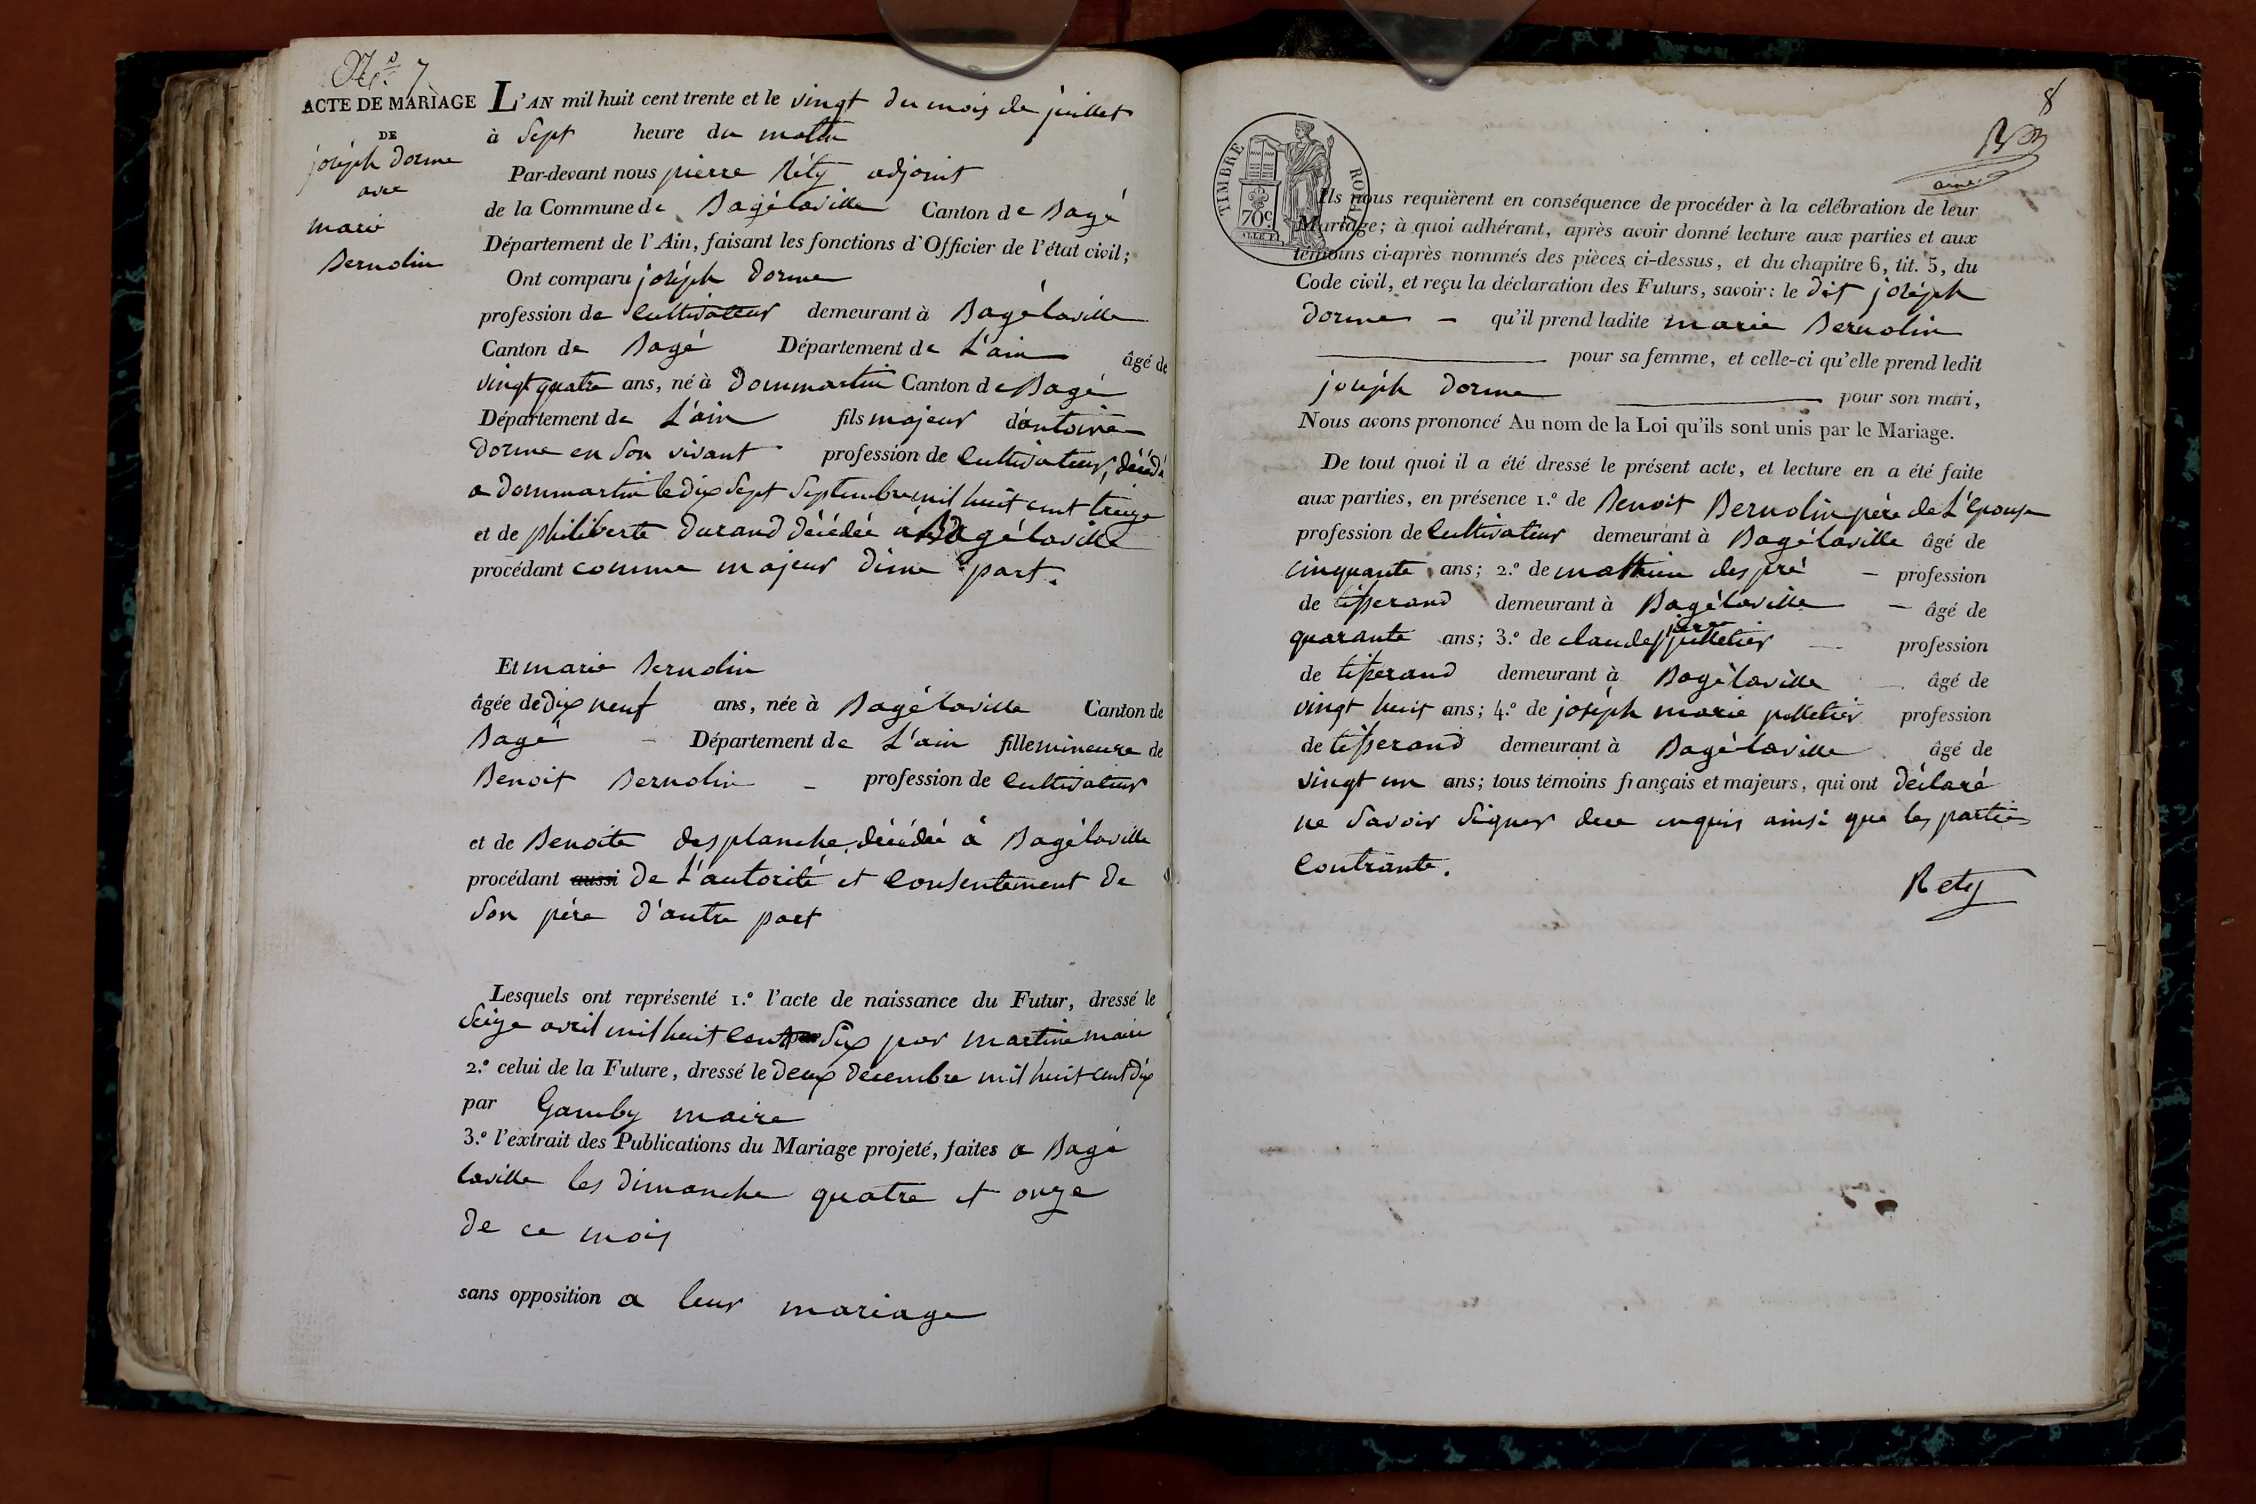 N.º 7
ACTE DE MARIAGE
DE
joséph dorme
avec
marie
Bernolin
L'AN mil huit cent trente et le vingt du mois de juillet
à sept heure du matin
Par-devant nous pierre Réty adjoint
de la Commune de Bagélaville Canton de Bagé
Département de l'Ain, faisant les fonctions d'Officier de l'état civil;
Ont comparu joséph dorme
profession de cultivateur demeurant à Bagélaville
Canton de Bagé Département de L'ain âgé de
vingt quatre ans, né à dommartin Canton de Bagé
Département de L'ain fils majeur d'antoine
dorme en son vivant profession de cultivateur, décédé
a dommartin le dix sept septembre mil huit cent treize
et de philiberte durand décédée à Bagélaville
procédant comme majeur d'une part.
Et marie Bernolin
âgée de dix neuf ans, née à Bagélaville Canton de
Bagé Département de L'ain fille mineure de
Benoit Bernolin profession de cultivateur
et de Benoite desplanche décédée à Bagélaville
procédant aussi de L'autorité et consentement de
son pére d'autre part
Lesquels ont représenté 1.º l'acte de naissance du Futur, dressé le
seize avril mil huit cent six par martine maire
2.º celui de la Future, dressé le deux decembre mil huit cent dix
par Gamby maire
3.º l'extrait des Publications du Mariage projeté, faites a Bagé
laville les dimanche quatre et onze
de ce mois
sans opposition a leur mariage
8
TIMBRE ROYAL
70c.
Ils nous requièrent en conséquence de procéder à la célébration de leur
Mariage; à quoi adhérant, après avoir donné lecture aux parties et aux
témoins ci-après nommés des pièces ci-dessus, et du chapitre 6, tit. 5, du
Code civil, et reçu la déclaration des Futurs, savoir: le dit joséph
dorme qu'il prend ladite marie Bernolin
pour sa femme, et celle-ci qu'elle prend ledit
joséph dorme pour son mari,
Nous avons prononcé Au nom de la Loi qu'ils sont unis par le Mariage.
De tout quoi il a été dressé le présent acte, et lecture en a été faite
aux parties, en présence 1.º de Benoit Bernolin père de L'épouse
profession de cultivateur demeurant à Bagélaville âgé de
cinquante ans; 2.º de mathieu despré profession
de tisserand demeurant à Bagélaville âgé de
quarante ans; 3.º de claude pierre pelletier profession
de tisserand demeurant à Bagélaville âgé de
vingt huit ans; 4.º de joséph marie pelletier profession
de tisserand demeurant à Bagélaville âgé de
vingt un ans; tous témoins français et majeurs, qui ont déclaré
ne savoir signer de ce enquis ainsi que les parties
contrante.
Rety